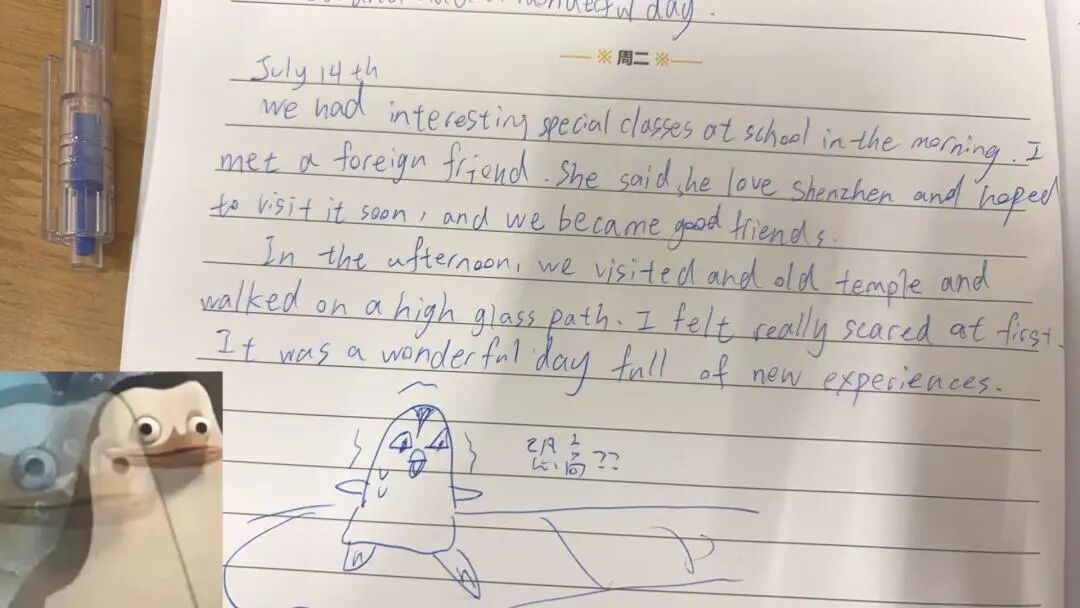 wonderful day.
※ 周二 ※
July 14th
we had interesting special classes at school in the morning. I
met a foreign friend. She said, he love Shenzhen and hoped
to visit it soon, and we became good friends.
In the afternoon, we visited and old temple and
walked on a high glass path. I felt really scared at first.
It was a wonderful day full of new experieences.
高??